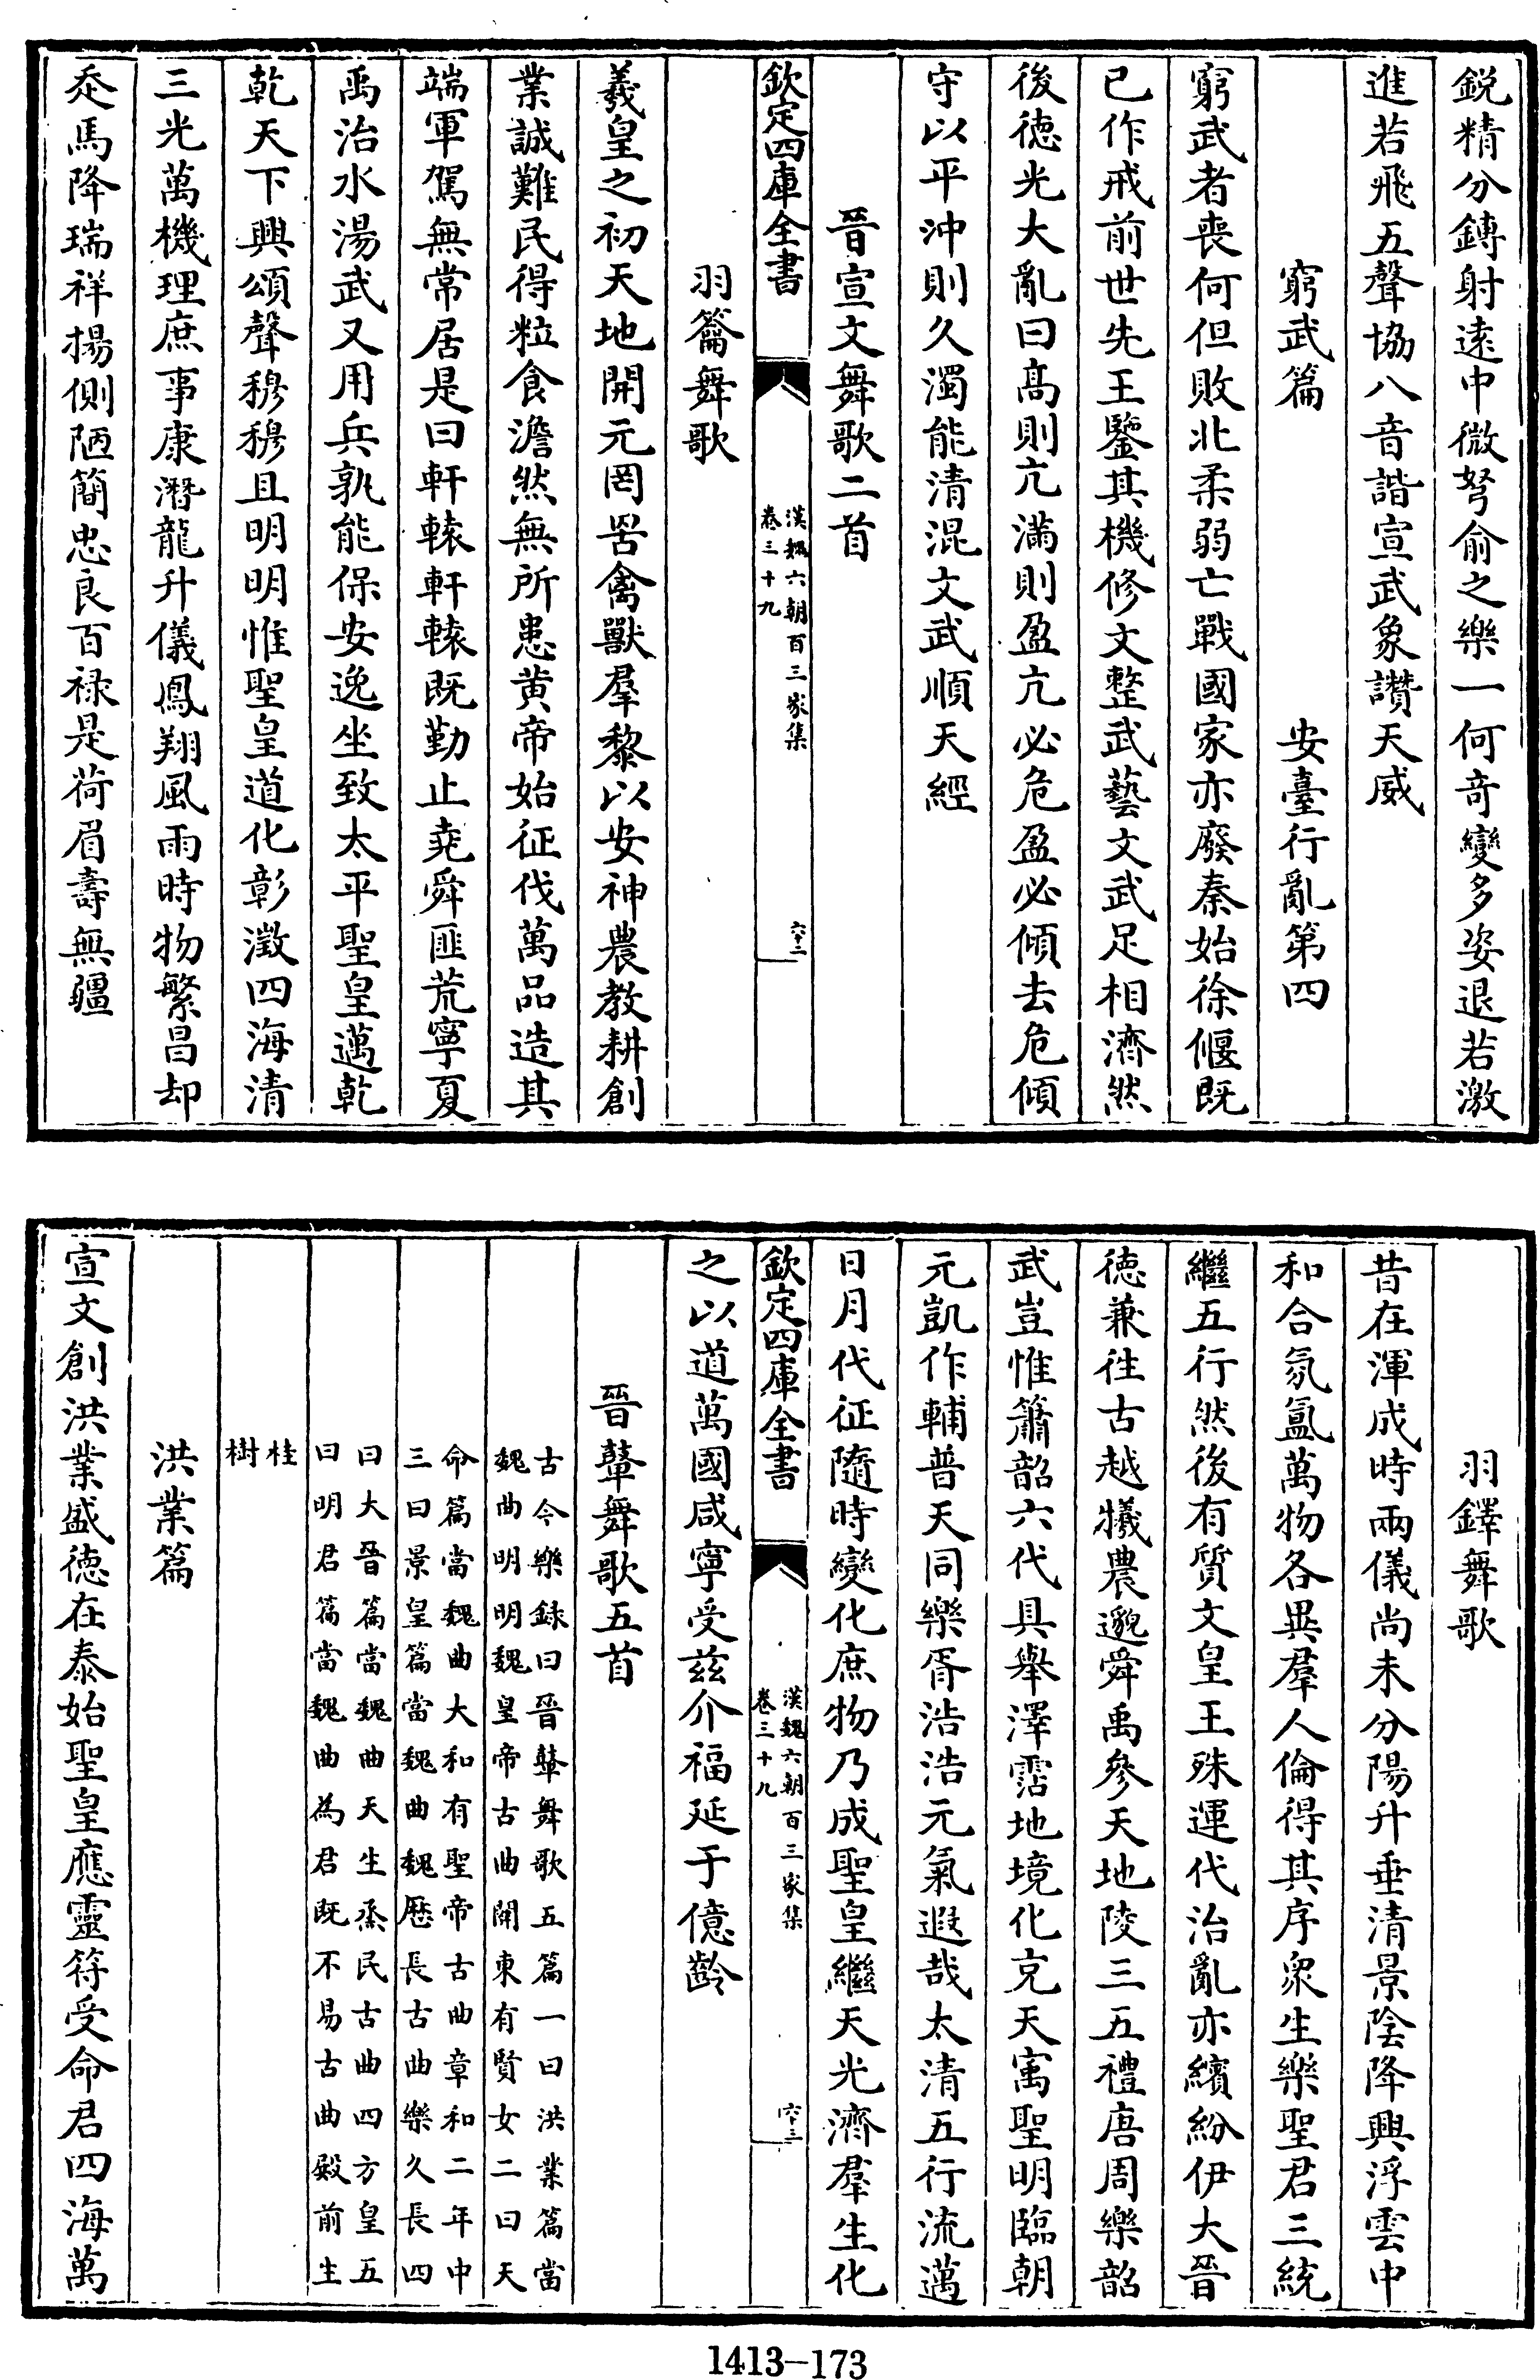 鋭精分鏄射逺中微弩俞之樂一何竒變多姿退若激
進若飛五聲協八音諧宣武象讃天威
窮武篇　安臺行亂第四
窮武者喪何但敗北柔弱亡戰國家亦廢秦始徐偃既
已作戒前世先王鑒其機修文整武藝文武足相濟然
後徳光大亂曰髙則亢滿則盈亢必危盈必傾去危傾
守以平沖則久濁能清混文武順天經
晉宣文舞歌二首
欽定四庫全書
漢魏六朝百三家集
卷三十九
六十二
羽籥舞歌
羲皇之初天地開元罔罟禽獸羣黎以安神農教耕創
業誠難民得粒食澹然無所患黄帝始征伐萬品造其
端軍駕無常居是曰軒轅軒轅既勤止堯舜匪荒寧夏
禹治水湯武又用兵孰能保安逸坐致太平聖皇邁乾
乾天下興頌聲穆穆且明明惟聖皇道化彰澂四海清
三光萬機理庶事康潛龍升儀鳯翔風雨時物繁昌却
走馬降瑞祥揚側陋簡忠良百禄是荷眉壽無疆
羽鐸舞歌
昔在渾成時兩儀尚未分陽升垂清景陰降興浮雲中
和合氛氲萬物各異羣人倫得其序衆生樂聖君三統
繼五行然後有質文皇王殊運代治亂亦繽紛伊大晉
徳兼往古越犧農邈舜禹參天地陵三五禮唐周樂韶
武豈惟簫韶六代具舉澤霑地境化克天㝢聖明臨朝
元凱作輔普天同樂胥浩浩元氣遐哉太清五行流邁
日月代征隨時變化庶物乃成聖皇繼天光濟羣生化
欽定四庫全書
漢魏六朝百三家集
卷三十九
六十三
之以道萬國咸寧受兹介福延于億齡
晉鼙舞歌五首
古今樂録曰晉鼙舞歌五篇一曰洪業篇當
魏曲明明魏皇帝古曲關東有賢女二曰天
命篇當魏曲大和有聖帝古曲章和二年中
三曰景皇篇當魏曲魏歴長古曲樂久長四
曰大晉篇當魏曲天生烝民古曲四方皇五
曰明君篇當魏曲為君既不易古曲殿前生
桂
樹
洪業篇
宣文創洪業盛徳在泰始聖皇應靈符受命君四海萬
1413-173